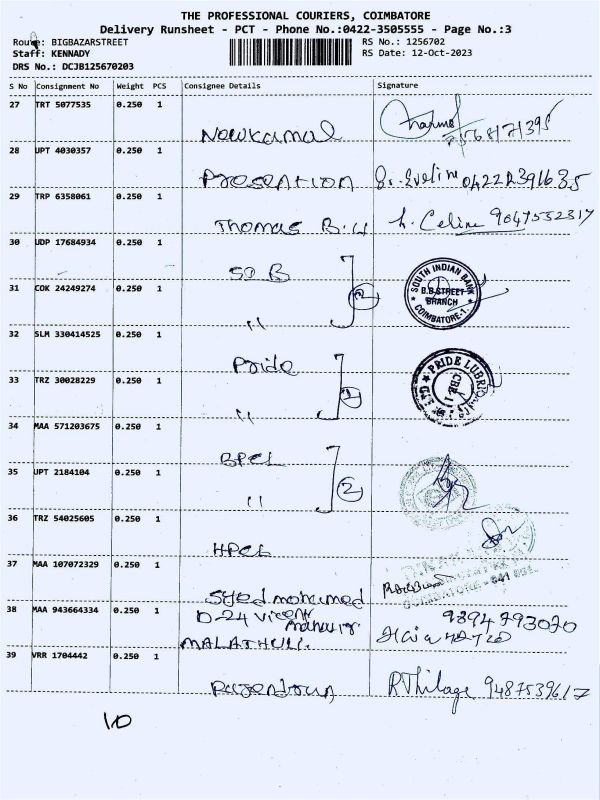 THE PROFESSIONAL COURIERS, COIMBATORE
Delivery Runsheet - PCT - Phone No.:0422-3505555 - Page No.:3
Route: BIGBAZARSTREET
RS No.: 1256702
Staff: KENNADY
RS Date: 12-Oct-2023
DRS No.: DCJB125670203
S No Consignment No Weight PCS Consignee Details Signature
27 TRT 5077535 0.250 1
Newkamal
28 UPT 4030357 0.250 1
Presentation 04222391635
29 TRP 6358061 0.250 1
Thomas B.U L. Celine 9047532317
30 UDP 17684934 0.250 1
SO B
SOUTH INDIAN BANK
B.B.STREET
BRANCH
COIMBATORE-1.
31 COK 24249274 0.250 1
"
2
32 SLM 330414525 0.250 1
Pride
PRIDE LUBRICANTS
CBE-1
33 TRZ 30028229 0.250 1
"
34 MAA 571203675 0.250 1
BPCL
35 UPT 2184104 0.250 1
"
2
36 TRZ 54025605 0.250 1
HPCL
37 MAA 107072329 0.250 1
Syed mohamed
38 MAA 943664334 0.250 1
D-24
MALATHULL.
9894793070
39 VRR 1704442 0.250 1
Rajendran R Thilaga 9487539617
10